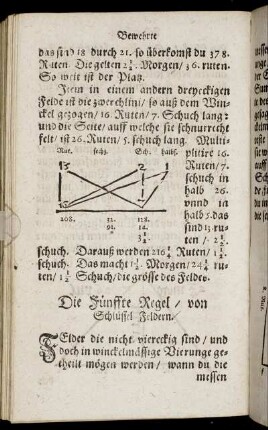 Bewehrte
das sind 18 durch 21. so überkomst du 378.
Ruten. Die gelten 2½. Morgen/ 36. ruten.
So weit ist der Platz.
Item in einem andern dreyeckigen
Felde ist die zwerchlini/ so auß dem Win-
ckel gezogen/ 16. Ruten/ 7. Schuch lang:
und die Seite/ auff welche sie schnurrecht
felt/ ist 26. Ruten/ 5. schuch lang. Multi-
Rut. schj. Sch. halff.
plicire 16.
Ruten/ 7.
schuch in
halb 26.
unnd in
halb 5. das
sind 13 ru-
ten/ 2½.
13 2
208. 32. 128.
91. 14.
3½.
schuch. Darauß werden 216¼ Ruten/ 1½.
schuch. Das macht 1½. Morgen/ 24¼ ru-
ten/ 1½ Schuch/ die grösse des Feldes.
Die Fünffte Regel/ von
Schlüssel Feldern.
FElder die nicht viereckig sind/ und
doch in winckelmässige Vierunge ge-
theilt mögen werden/ wann du die
messen